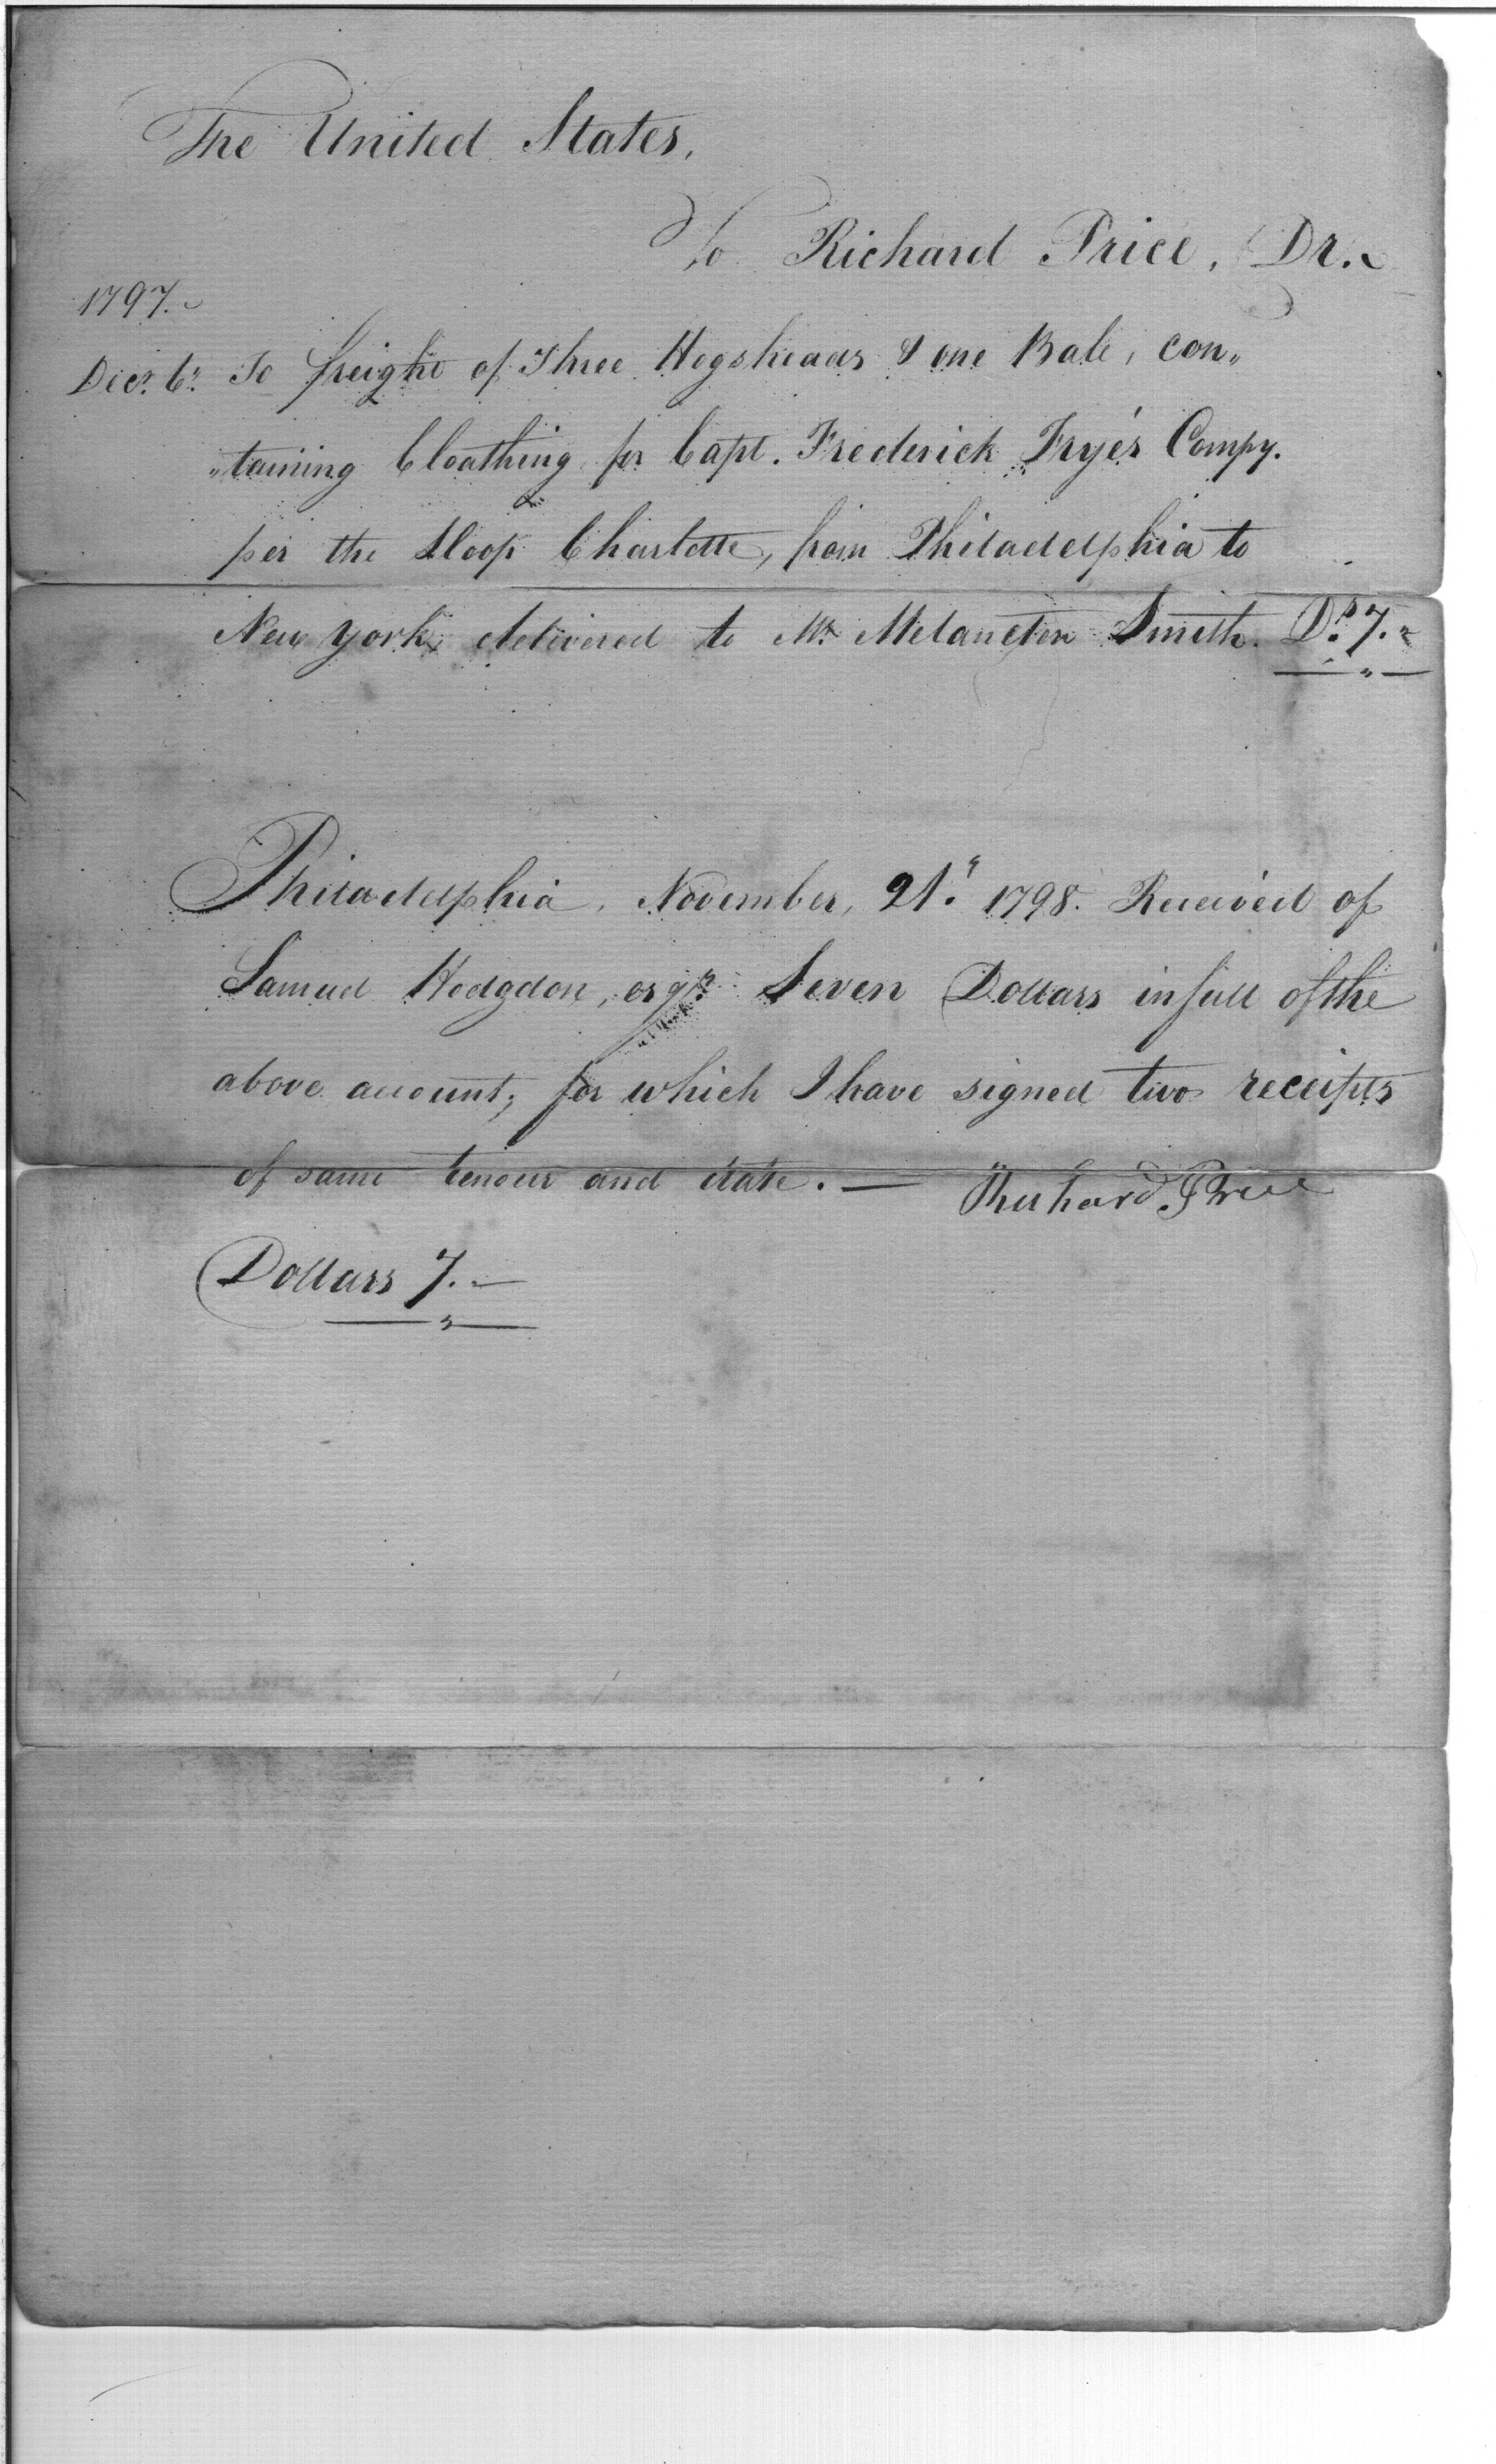 The United States,
To Richard Price, Dr.
1797.
Decr. 6. To freight of Three Hogsheads & one Bale, con„
„taining Cloathing for Capt. Frederick Frye's Compy.
per the Sloop Charlotte, from Philadelphia to
New York, delivered to Mr. Melancton Smith. Ds. 7.
Philadelphia, November, 21. 1798. Received of
Samuel Hodgdon, Seven Dollars in full of the
above account; for which I have signed two receipts
of same tenour and date. — Richard Price
Dollars 7. —